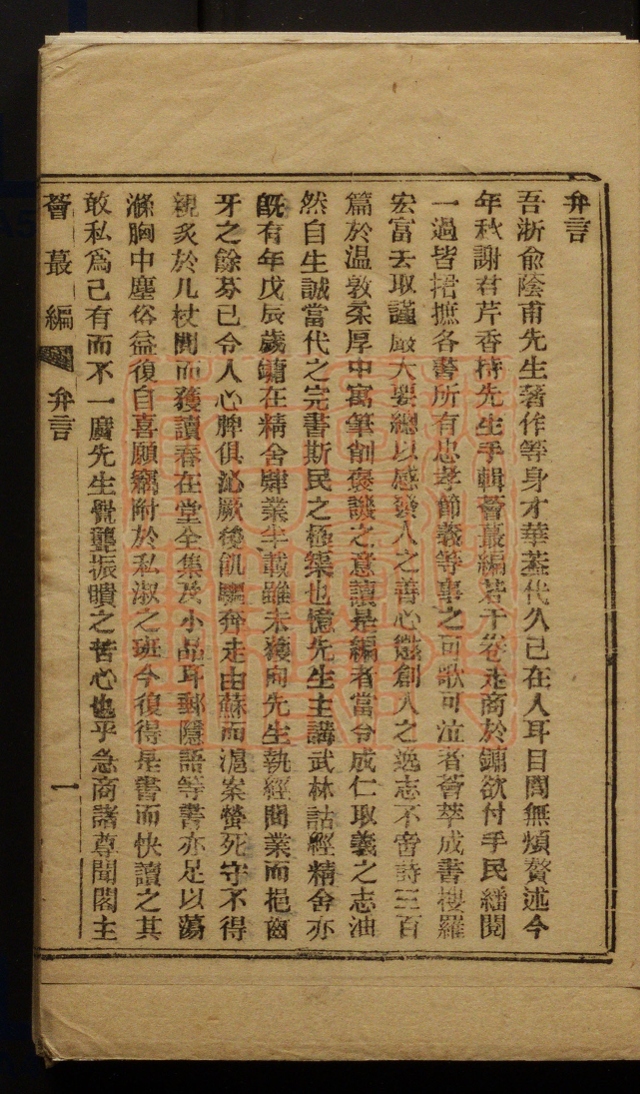 弁言
吾浙俞蔭甫先生著作等身才華蓋代久已在人耳目間無煩贅述今
年秋謝君芹香持先生手輯薈蕞編若干卷走商於鏞欲付手民繙閱
一過皆捃摭各書所有忠孝節義等事之可歌可泣者薈萃成書搜羅
宏富去取謹嚴大要總以感發人之善心懲創人之逸志不啻詩三百
篇於温敦柔厚中寓筆削褒譏之意讀是編者當令成仁取義之志油
然自生誠當代之完書斯民之極築也憶先生主講武林詁經精舍亦
旣有年戊辰歲鏞在精舍肄業半載雖未獲向先生執經問業而挹齒
牙之餘芬已令人心脾俱沁厥後飢驅奔走由蘇而滬案螢死守不得
親炙於几杖間而獲讀春在堂全集及小品耳郵隱語等書亦足以蕩
滌胸中塵俗益復自喜願竊附於私淑之班今復得是書而快讀之其
敢私爲己有而不一廣先生覺聾振聵之苦心也乎急商諸尊聞閣主
薈蕞編 弁言 一